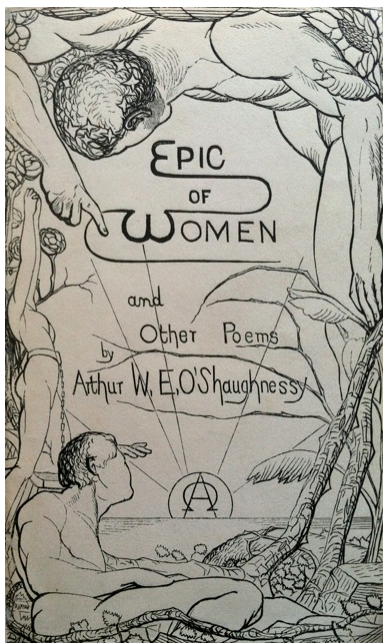 EPIC
OF
WOMEN
and
Other Poems
by
Arthur W. E. O'Shaughnessy